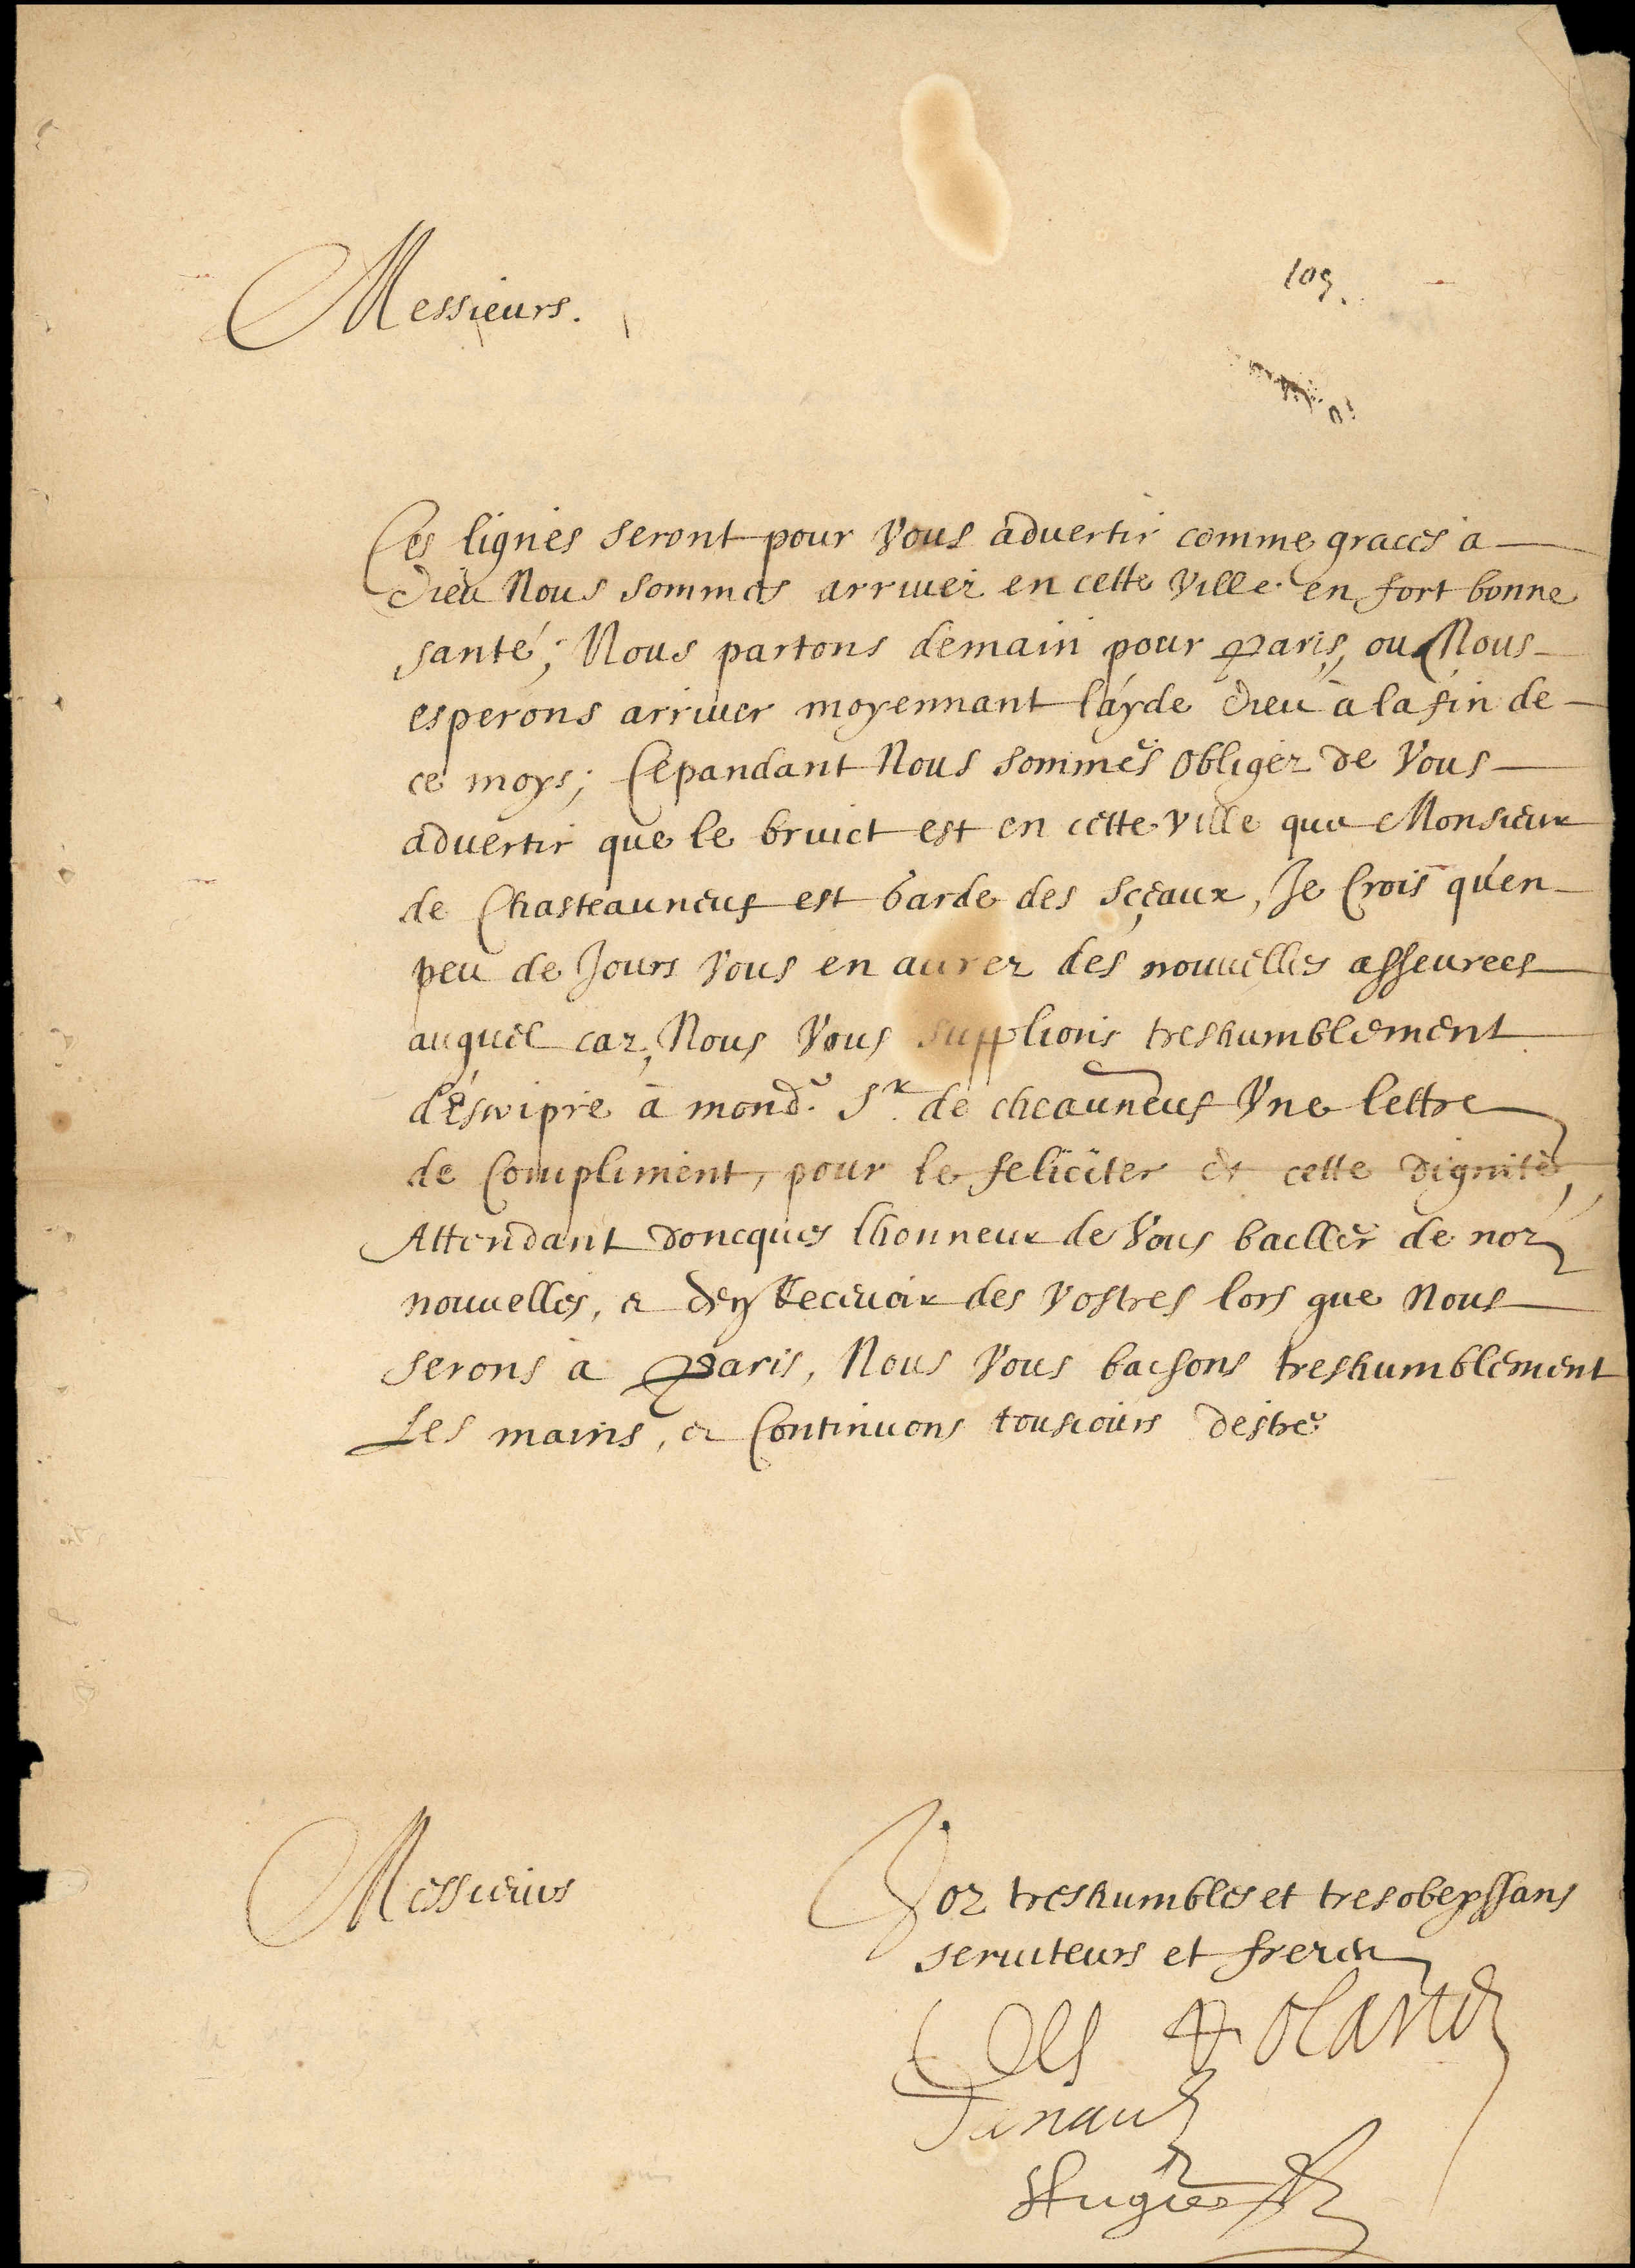 109.
Messieurs.
Ces lignes seront pour Vous advertir comme graces a
Dieu Nous sommes arrivez en cette Ville en fort bonne
santé; Nous partons demain pour Paris, ou Nous
esperons arriver moyennant l'ayde Dieu à la fin de
ce moys; Cepandant Nous sommes obligez de Vous
advertir que le bruict est en cette Ville que Monsieur
de Chasteauneuf est Garde des Sceaux, Je Crois qu'en
peu de Jours Vous en aurez des nouuelles asseurees
auquel caz, Nous Vous supplions treshumblement
d'escripre à mond. Sr. de cheauneuf Vne lettre
de Compliment, pour le feliciter de cette Dignité,
Attendant doncques lhonneur de Vous bailler de noz
nouuelles, & den Receuoir des Vostres lors que Nous
serons à Paris, Nous Vous baisons treshumblement
Les mains, & Continuons tousiours destre
Messieurs
Voz treshumbles et tresobeyssans
seruiteurs et freres